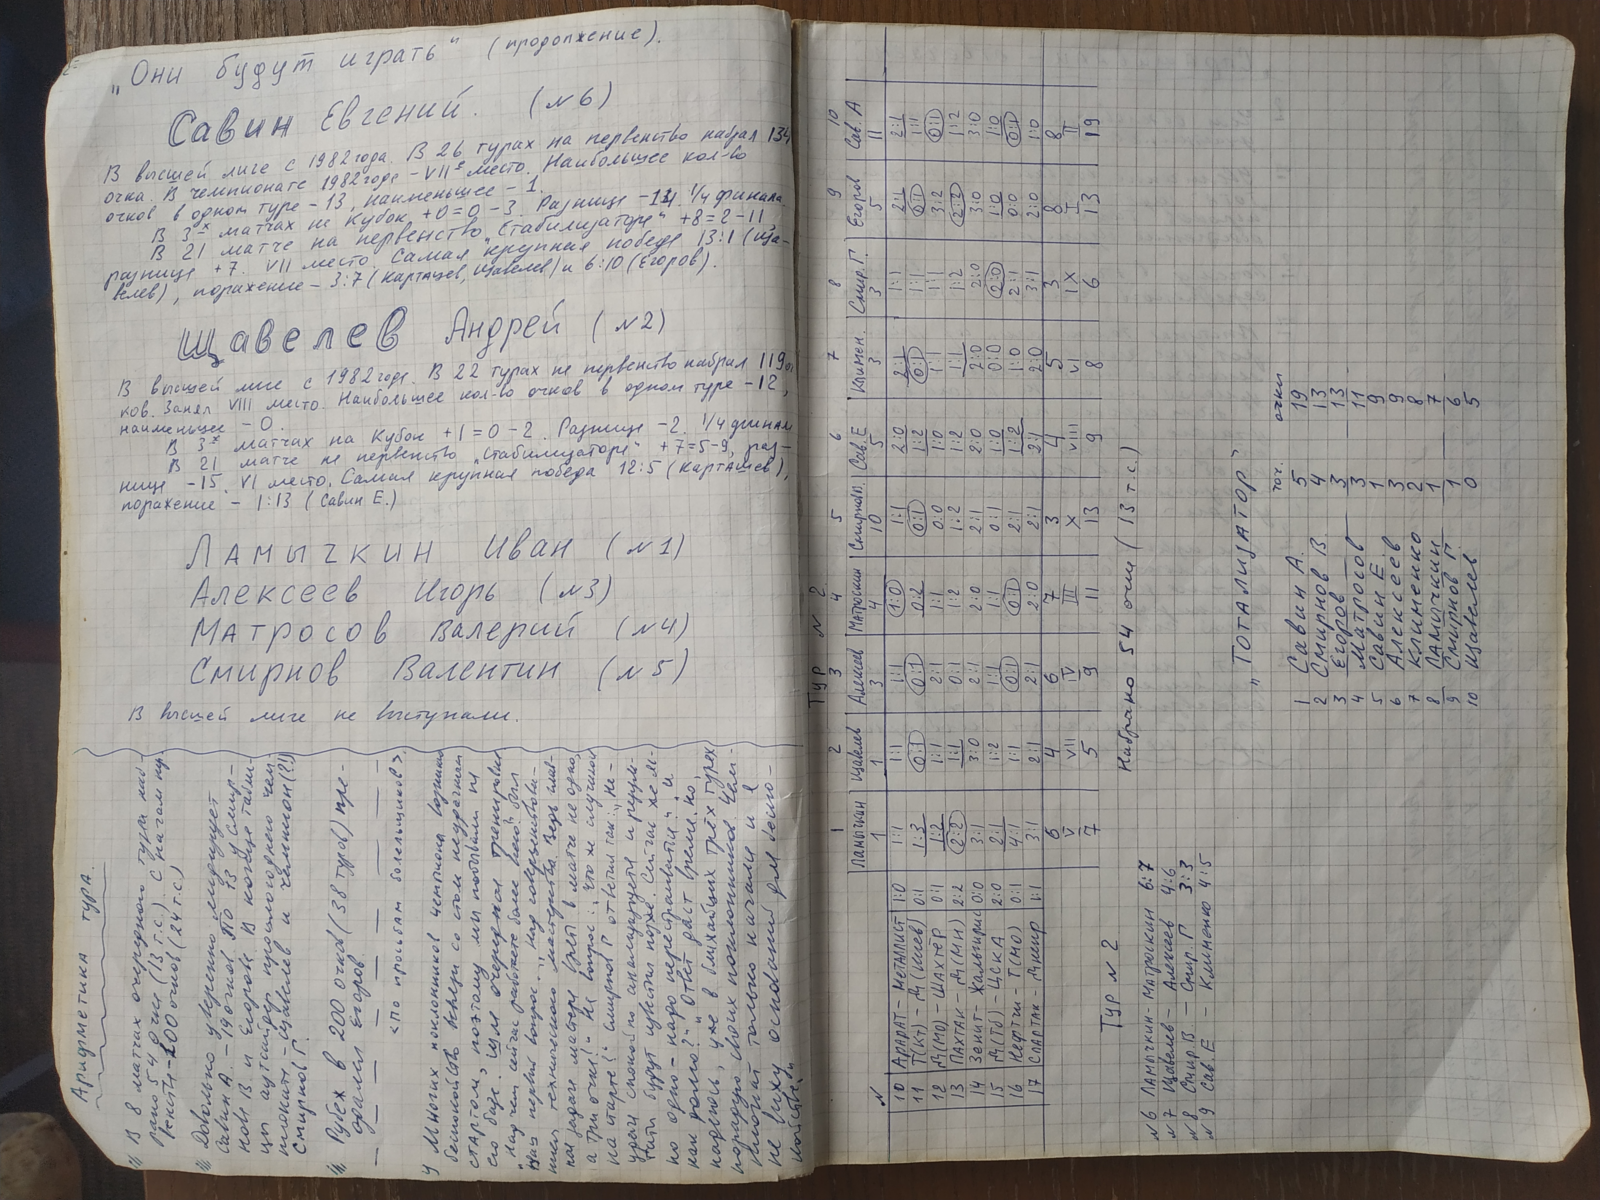 „Они будут играть" (продолжение).
Савин Евгений. (№6)
В высшей лиге с 1982 года. В 26 турах на первенство набрал 134
очка. В чемпионате 1982 года - VIIе место. Наибольшее кол-во
очков в одном туре - 13, наименьшее - 1.
В 3х матчах на Кубок +0=0-3. Разница -14. 1/4 финала
В 21 матче на первенство „Стабилизатора" +8=2-11,
разница +7. VII место. Самая крупная победа 13:1 (Ща-
велев), поражение - 3:7 (Карташев, Щавелев) и 6:10 (Егоров).
Щавелев Андрей (№2)
В высшей лиге с 1982 года. В 22 турах на первенство набрал 119 оч
ков. Занял VIII место. Наибольшее кол-во очков в одном туре -12,
наименьшее - 0.
В 3х матчах на Кубок +1=0-2. Разница -2. 1/4 финала
В 21 матче на первенство „Стабилизатора" +7=5-9, раз-
ница -15. VI место. Самая крупная победа 12:5 (Карташев),
поражение - 1:13 (Савин Е.)
Ламычкин Иван (№1)
Алексеев Игорь (№3)
Матросов Валерий (№4)
Смирнов Валентин (№5)
В высшей лиге не выступали.
Арифметика тура.
В 8 матчах очередного тура наб-
рано 54 очка (13 т.с.). С начала пу
- 200 очков (24 т.с.)
Довольно уверенно лидирует
Савин А. - 19 очков. По 13 у Смир-
нова В и Егорова. В конце табли-
цы аутсайдер прошлогоднего чем-
пионата - Щавелев и чемпион (?!)
Смирнов Г.
Рубеж в 200 очков (38 туров) пре-
одолел Егоров
<По просьбам болельщиков>
У многих поклонников чемпиона возникло
беспокойство в связи со столь неудачным
стартом, поэтому мы побывали на
его базе. Шла очередная тренировка
„Над чем сейчас работаете более всего" был
наш первый вопрос. „Над совершенствова-
нием технического мастерства. Ведь глав-
ная задача мастера брать в матче не одно,
а три очка!" На вопрос: „что же случилось
на старте?" Смирнов Г ответил так: „не-
удачи спокойно анализируются и резуль-
таты будут известны позже. Сейчас же яс-
но одно - надо перестраиваться!" и
как долго?" „Ответ даст время. но,
надеюсь, уже в ближайших трёх турах
порадую своих поклонников. Чем-
пионат только начался и я
не вижу оснований для беспо-
койства."
ТУР № 2
1 2 3 4 5 6 7 8 9 10
№ Ламычкин Щавелев Алексеев Матроскин Смирнов В. Сав. Е Климен. Смир. Г. Егоров Сав. А
1 1 3 4 10 5 3 3 5 11
10 Арарат - Металлист 1:0 1:1 1:1 1:1 1:0 1:1 2:0 2:1 1:1 2:1 2:1
11 Т(Кт) - Д(Киев) 0:1 1:3 0:1 0:1 0:2 0:1 1:2 0:1 1:1 0:1 1:1
12 Д(Мо) - Шахтёр 0:1 1:2 1:1 2:1 1:1 0:0 1:0 1:1 1:1 3:2 0:1
13 Пахтак - Д(Мн) 2:2 2:2 1:1 0:1 1:2 1:2 1:2 1:1 1:2 2:2 1:2
14 Зенит - Жальгирис 0:0 3:1 3:0 2:1 2:0 2:1 2:0 2:0 2:0 3:0 3:0
15 Д(Тб) - ЦСКА 2:0 2:1 1:2 1:1 1:1 0:1 1:0 0:0 2:0 1:0 1:0
16 Нефтчи - Т(МО) 0:1 4:1 1:1 0:1 0:1 2:1 1:2 1:0 2:1 0:0 0:1
17 Спартак - Днепр 1:1 3:1 2:1 2:1 2:0 2:1 2:1 2:0 3:1 2:0 1:0
6 4 6 7 3 4 5 3 8 8
V VII IV III X VIII VI IX I II
7 5 9 11 13 9 8 6 13 19
Набрано 54 очка (13 т.с.)
ТУР № 2
№6 Ламычкин - Матроскин 6:7
№7 Щавелев - Алексеев 4:6
№8 Смир. В - Смир. Г 3:3
№9 Сав. Е - Клименко 4:5
„ТОТАЛИЗАТОР"
точ. очки
1 Савин А. 5 19
2 Смирнов В 4 13
3 Егоров 3 13
4 Матросов 3 11
5 Савин Е 1 9
6 Алексеев 3 9
7 Клименко 2 8
8 Ламычкин 1 7
9 Смирнов Г. 1 6
10 Щавелев 0 5